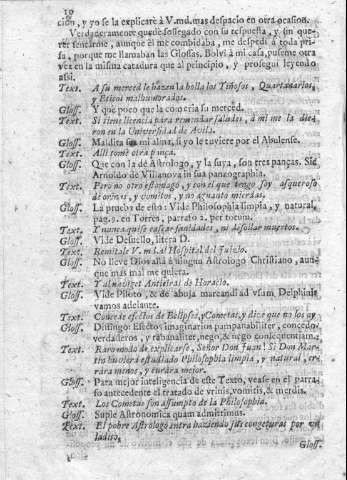 10
cion, y yo se la explicarè à V.md. mas despacio en otra ocasion.
Verdaderamente quedè sossegado con su respuesta, y sin querer
sentarme, aunque èl me combidaba, me despedì à toda prisa,
porque me llamaban las Glossas. Bolvì à mi casa, puseme otra
vez en la misma catadura que al principio, y proseguì leyendo
assi.
Text. A su merced le hazen la holla los Tiñosos, Quartanarios,
y Eticos malhumorados.
Gloss. Y què poco que la comeria su merced.
Text. Si tiene licencia para remendar saludes, à mi me la dieron
en la Universidad de Avila.
Gloss. Maldita sea mi alma, si yo le tuviere por el Abulense.
Text. Alli tomè otra panza.
Gloss. Que con la de Astrologo, y la suya, son tres panças. Sic
Arnoldo de Villanova in sua panzographia.
Text. Pero no otro estomago, y con el que tengo soy asqueroso
de orinas, y vomitos, y no aguanto mierdas.
Gloss. La prueba de esto: Vide Philosophia limpia, y natural,
pag. 9. en Torres, parrafo 2. per totum.
Text. Y nunca quise cascar sanidades, ni desollar muertos.
Gloss. Vide Desuello, litera D.
Text. Remitale V. md. al Hospital del Juizio.
Gloss. No lleve Dios allà à ningun Astrologo Christiano, aunque
mas mal me quiera.
Text. Y al
Gloss. Vide Ploto, & de abuja marcandi ad usum Delphini:
vamos adelante.
Text. Concede efectos de Eclipses, y Cometas, y dize que no los ay
Gloss. Distingo: Efectos imaginarios pampanabiliter, concedo:
verdaderos, y rabanaliter, nego, & nego consequentiam.
Text. Raro modo de explicarse, Señor Don Juan! Si Don Martin
huviera estudiado Philosophia limpia, y natural, erràra
menos, y curàra mejor.
Gloss. Para mejor inteligencia de este Texto, vease en el parrafo
antecedente el tratado de vrinis, vomitis, & merdis.
Text. Los Cometas son assumpto de la Philosophia.
Gloss. Suple Astronomica quam admittimus.
Text. El pobre Astrologo entra haziendo sus congeturas por un
ladito.
Gloss.